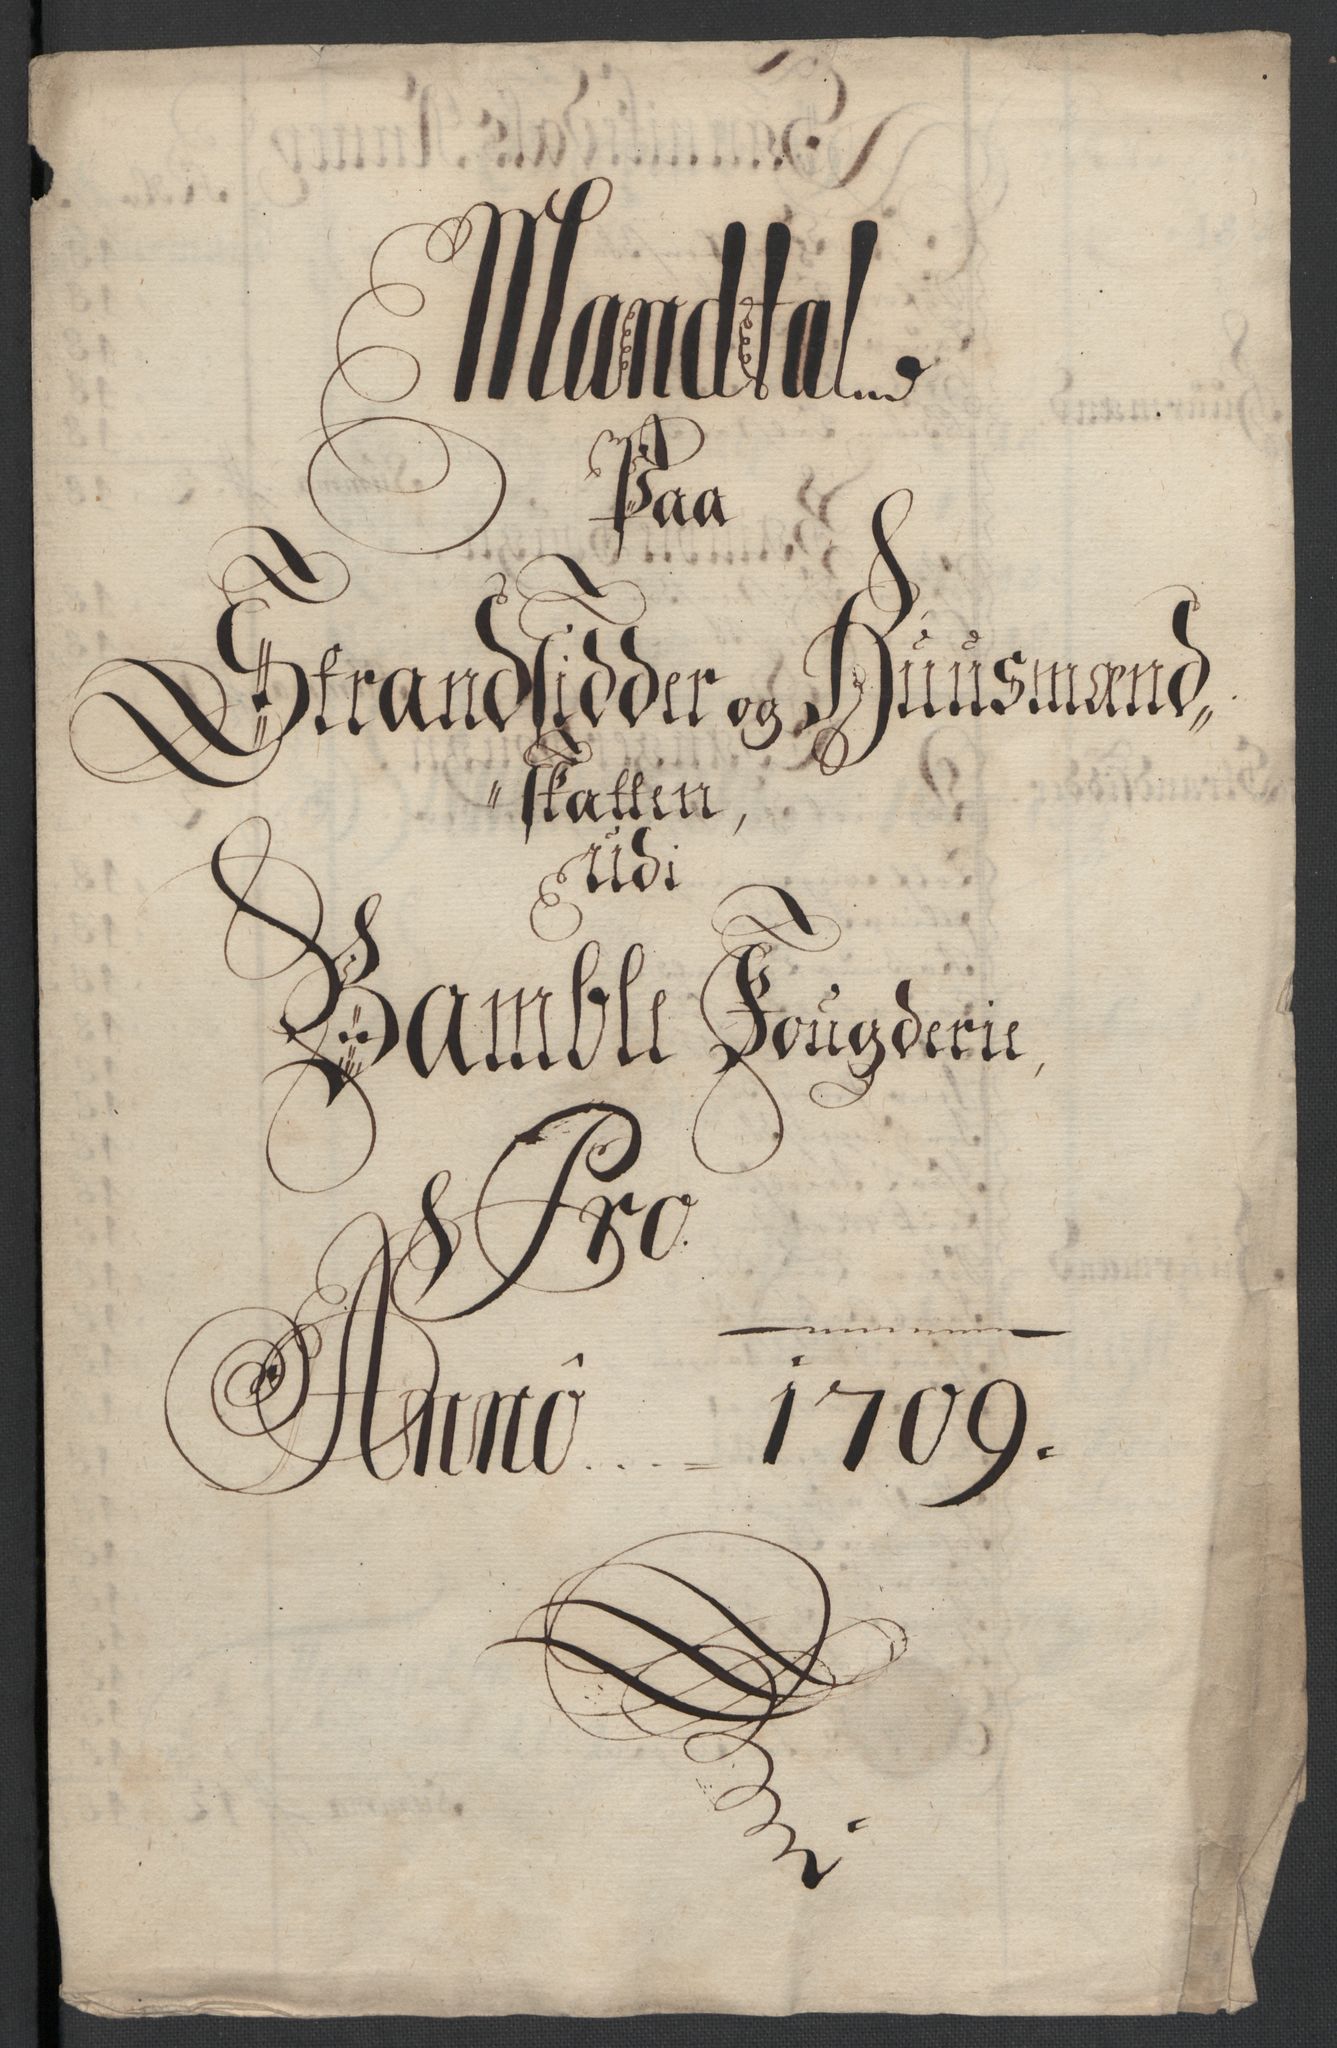 Mandtal
Paa
Strandsidder og Huusmænd„
„skatten,
udi
Bamble Fougderie,
Pro
Annô .... = 1709.